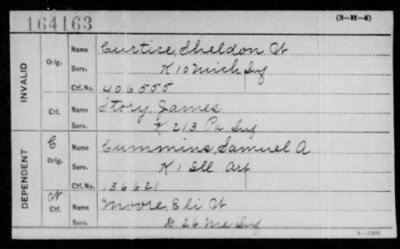 164163
(3-H-4)
INVALID
Orig.
Name Curtice, Sheldon W
Serv. K 10 Mich Inf
Ctf. No. 406555
Ctf.
Name Story, James
Serv. K 213 Pa Inf
DEPENDENT
C
Orig.
Name Cummins, Samuel A
Serv. K 1 Ill Art
Ctf. No. 136621
W
Ctf.
Name Moore, Eli W
Serv. D 26 Me Inf